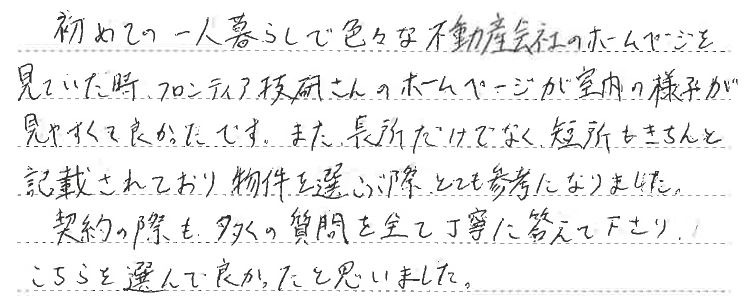 初めての一人暮らしで色々な不動産会社のホームページを
見ていた時、フロンティア技研さんのホームページが室内の様子が
見やすくて良かったです。また、長所だけでなく、短所もきちんと
記載されており物件を選ぶ際、とても参考になりました。
契約の際も、多くの質問を全て丁寧に答えて下さり、
こちらを選んで良かったと思いました。